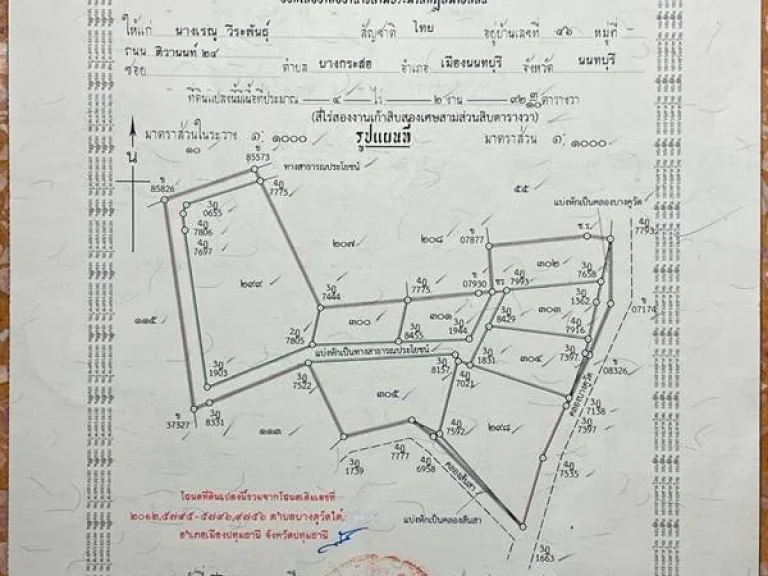 ให้แก่ นางเรณุ วีระพันธุ์ สัญชาติ ไทย อยู่บ้านเลขที่ ๔๖ หมู่ที่ -
ถนน ติวานนท์ ๒๔
ซอย ตำบล บางกระสอ อำเภอ เมืองนนทบุรี จังหวัด นนทบุรี
ที่ดินแปลงนี้มีเนื้อที่ประมาณ ๔ ไร่ ๒ งาน ๙๒ ๓/๑๐ ตารางวา
(สี่ไร่สองงานเก้าสิบสองเศษสามส่วนสิบตารางวา)
มาตราส่วนในระวาง ๑: ๑๐๐๐ รูปแผนที่ มาตราส่วน ๑: ๑๐๐๐
๑๐
น
ข 85826
ข 85573
ทางสาธารณประโยชน์
๔ฎ 7775
๓ฎ 0655
๔ฎ 7806
๔ฎ 7697
๒๐๗
๒๐๘
๕๕
ข 07877
แบ่งหักเป็นคลองบางคูวัด
ช.ร.
๔ฎ 7793
๒๙๙
๑๑๕
๓ฎ 7444
๔ฎ 7775
ข 07930
ชร
๔ฎ 7993
๓๐๒
๓ฎ 7658
๓ฎ 1362
ข 07174
๓๐๐
๓๐๑
๓๐๓
๒ฎ 7805
๓ฎ 8455
๓ฎ 1944
๓ฎ 8429
๔ฎ 7916
แบ่งหักเป็นทางสาธารณประโยชน์
๓ฎ 8157
๔ฎ 7021
๓ฎ 1831
๓๐๔
๓ฎ 7397
ข 08326
๓ฎ 1903
๓ฎ 7522
๓๐๕
คลองบางคูวัด
ข 37327
๓ฎ 8331
๑๑๓
๓ฎ 1739
๔ฎ 7777
๔ฎ 6958
๔ฎ 7592
๒๙๘
๓ฎ 7138
๓ฎ 7397
๔ฎ 7535
คลองส้นสา
แบ่งหักเป็นคลองส้นสา
๓ฎ 1683
โฉนดที่ดินแปลงนี้รวมจากโฉนดเดิมเลขที่
๒๐๑๒,๕๗๔๕-๕๗๔๖,๙๗๕๖ ตำบลบางคูวัดใต้
อำเภอเมืองปทุมธานี จังหวัดปทุมธานี